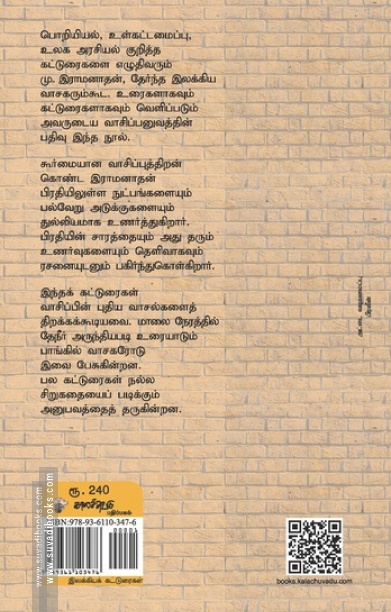 பொறியியல், உள்கட்டமைப்பு,
உலக அரசியல் குறித்த
கட்டுரைகளை எழுதிவரும்
மு. இராமனாதன், தேர்ந்த இலக்கிய
வாசகரும்கூட. உரைகளாகவும்
கட்டுரைகளாகவும் வெளிப்படும்
அவருடைய வாசிப்பனுவத்தின்
பதிவு இந்த நூல்.
கூர்மையான வாசிப்புத்திறன்
கொண்ட இராமனாதன்
பிரதியிலுள்ள நுட்பங்களையும்
பல்வேறு அடுக்குகளையும்
துல்லியமாக உணர்த்துகிறார்.
பிரதியின் சாரத்தையும் அது தரும்
உணர்வுகளையும் தெளிவாகவும்
ரசனையுடனும் பகிர்ந்துகொள்கிறார்.
இந்தக் கட்டுரைகள்
வாசிப்பின் புதிய வாசல்களைத்
திறக்கக்கூடியவை. மாலை நேரத்தில்
தேநீர் அருந்தியபடி உரையாடும்
பாங்கில் வாசகரோடு
இவை பேசுகின்றன.
பல கட்டுரைகள் நல்ல
சிறுகதையைப் படிக்கும்
அனுபவத்தைத் தருகின்றன.
ரூ. 240
காலச்சுவடு
பதிப்பகம்
ISBN:978-93-6110-347-6
இலக்கியக் கட்டுரைகள்
books.kalachuvadu.com
www.suvadibooks.com
www.suvadibooks.com